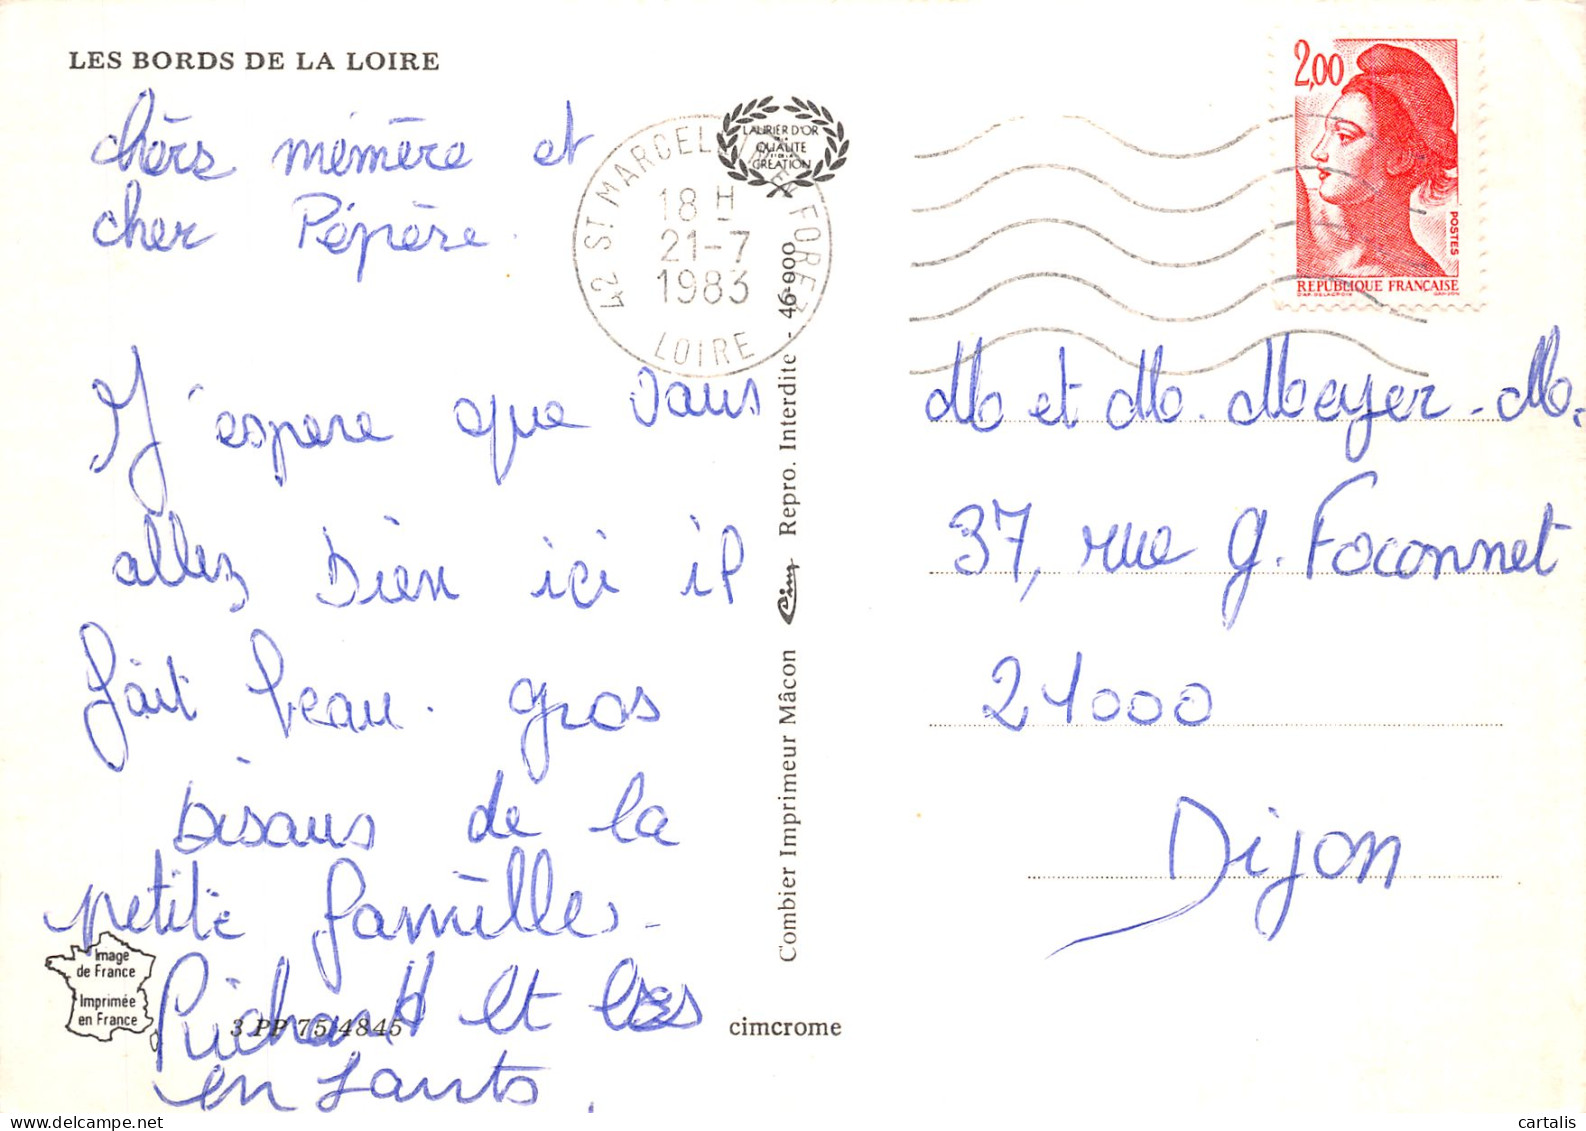 LES BORDS DE LA LOIRE
chèrs mémère et
cher Pépère.
J'éspere que vous
allez bien ici il
fait beau. gros
bisous de la
petite famille.
Richard et les
enfants.
Image
de France
Imprimée
en France
3 PP 75/4845
cimcrome
Combier Imprimeur Mâcon Cim Repro. Interdite - 46-000
LAURIER D'OR
DE LA
QUALITE
CREATION
42 ST MARCELLIN EN FOREZ
18 H
21-7
1983
LOIRE
2,00
POSTES
REPUBLIQUE FRANÇAISE
D'AP. DELACROIX GANDON
M et M. Meyer. M.
37, rue g. Foconnet
21000
Dijon
cartalis
delcampe.net